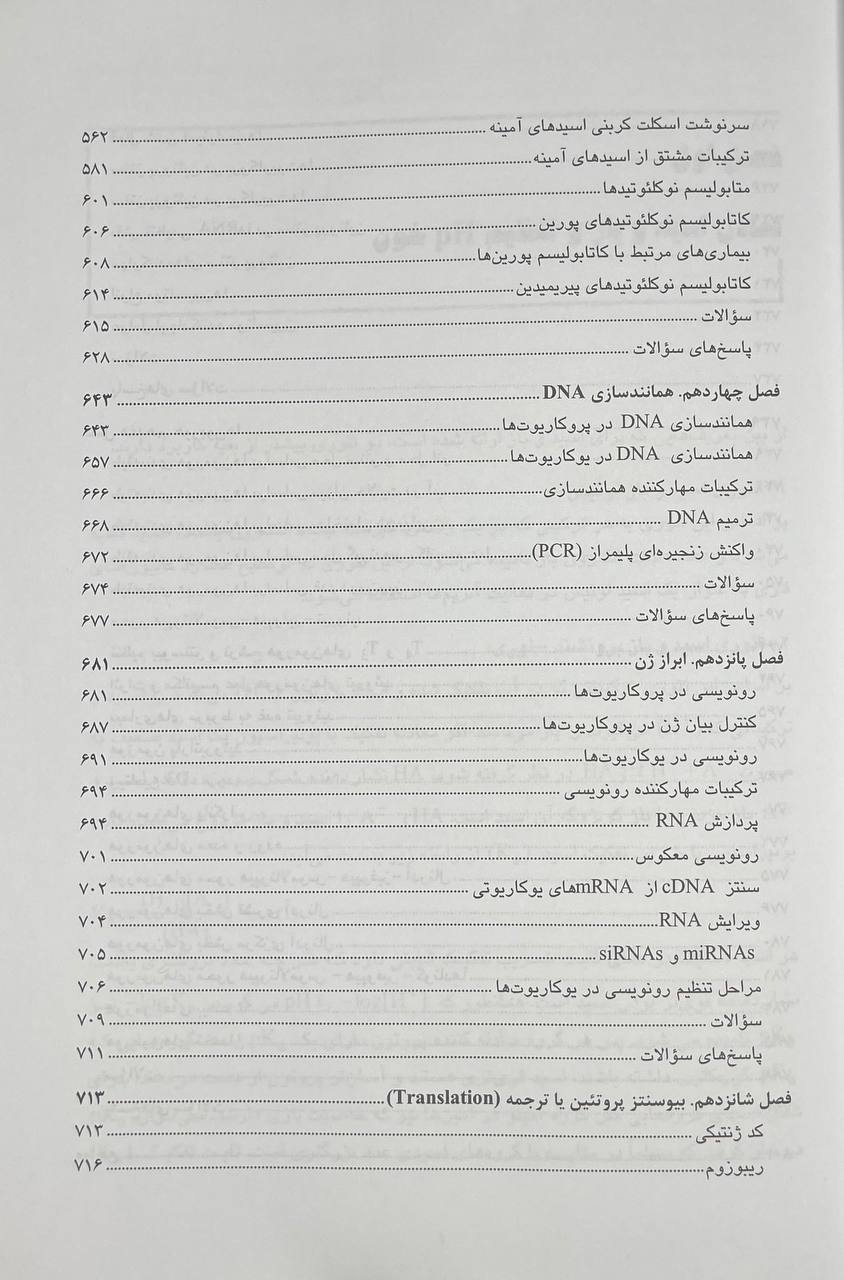 سرنوشت اسکلت کربنی اسیدهای آمینه ... ۵۶۲
ترکیبات مشتق از اسیدهای آمینه ... ۵۸۱
متابولیسم نوکلئوتیدها ... ۶۰۱
کاتابولیسم نوکلئوتیدهای پورین ... ۶۰۶
بیماری‌های مرتبط با کاتابولیسم پورین‌ها ... ۶۰۸
کاتابولیسم نوکلئوتیدهای پیریمیدین ... ۶۱۴
سؤالات ... ۶۱۵
پاسخ‌های سؤالات ... ۶۲۸
فصل چهاردهم. همانندسازی DNA ... ۶۴۳
همانندسازی DNA در پروکاریوت‌ها ... ۶۴۳
همانندسازی DNA در یوکاریوت‌ها ... ۶۵۷
ترکیبات مهارکننده همانندسازی ... ۶۶۶
ترمیم DNA ... ۶۶۸
واکنش زنجیره‌ای پلیمراز (PCR) ... ۶۷۲
سؤالات ... ۶۷۴
پاسخ‌های سؤالات ... ۶۷۷
فصل پانزدهم. ابراز ژن ... ۶۸۱
رونویسی در پروکاریوت‌ها ... ۶۸۱
کنترل بیان ژن در پروکاریوت‌ها ... ۶۸۷
رونویسی در یوکاریوت‌ها ... ۶۹۱
ترکیبات مهارکننده رونویسی ... ۶۹۴
پردازش RNA ... ۶۹۴
رونویسی معکوس ... ۷۰۱
سنتز cDNA از mRNAهای یوکاریوتی ... ۷۰۲
ویرایش RNA ... ۷۰۴
miRNAs و siRNAs ... ۷۰۵
مراحل تنظیم رونویسی در یوکاریوت‌ها ... ۷۰۶
سؤالات ... ۷۰۹
پاسخ‌های سؤالات ... ۷۱۱
فصل شانزدهم. بیوسنتز پروتئین یا ترجمه (Translation) ... ۷۱۳
کد ژنتیکی ... ۷۱۳
ریبوزوم ... ۷۱۶